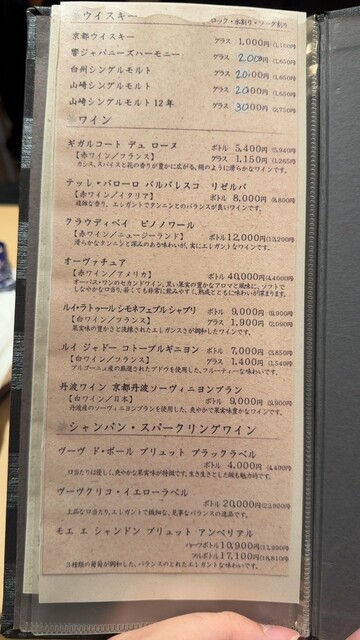 ウイスキー ロック・水割り・ソーダ割り
京都ウイスキー グラス 1,000円(1,100円)
響ジャパニーズハーモニー グラス 2000円(1,650円)
白州シングルモルト グラス 2000円(1,650円)
山崎シングルモルト グラス 2000円(1,650円)
山崎シングルモルト 12年 グラス 3000円(2,750円)
ワイン
ギガルコート デュ ローヌ ボトル 5,400円(5,940円)
【赤ワイン/フランス】 グラス 1,150円(1,265円)
カシス、スパイスと花の香りが豊かに広がる、絹のように滑らかなワインです。
テッレ・バローロ バルバレスコ リゼルバ
【赤ワイン/イタリア】 ボトル 8,000円(8,800円)
複雑な香り、エレガントでタンニンとのバランスが良いワインです。
クラウディベイ ピノノワール
【赤ワイン/ニュージーランド】 ボトル12,000円(13,200円)
滑らかなタンニンと深みのある味わいが、実にエレガントなワインです。
オーヴァチュア
【赤ワイン/アメリカ】 ボトル 40,000円(44,000円)
オーパス・ワンのセカンドワイン。黒い果実の豊かなアロマと風味に、ソフトで
しなやかな口当り。若くても非常に飲みやすく、熟成とともに味わいが深まります。
ルイ・ラトゥール シモネフェブル シャブリ ボトル 9,000円(9,900円)
【白ワイン/フランス】 グラス 1,900円(2,090円)
果実味の豊かさと洗練されたエレガンスさが調和したワインです。
ルイ ジャドー コトーブルギニヨン ボトル 7,000円(7,850円)
【白ワイン/フランス】 グラス 1,400円(1,540円)
ブルゴーニュ産の厳選されたブドウを使用した、フルーティーな味わいです。
丹波ワイン 京都丹波ソーヴィニヨンブラン
【白ワイン/日本】 ボトル 9,000円(9,900円)
丹波産のソーヴィニヨンブランを使用した、爽やかで果実味豊かなワインです。
シャンパン・スパークリングワイン
ヴーヴ ド・ポール ブリュット ブラックラベル
ボトル 4,000円(4,400円)
口当たりは優しく、爽やかな果実味が特徴です。生き生きとした酸も魅力的です。
ヴーヴクリコ・イエローラベル
ボトル 20,000円(22,000円)
上品な口当たり、エレガントで緻密な、見事なバランスの逸品です。
モエ エ シャンドン ブリュット アンペリアル
ハーフボトル 10,900円(11,990円)
フルボトル 17,100円(18,810円)
3種類の葡萄が調和した、バランスのとれたエレガントな味わいです。